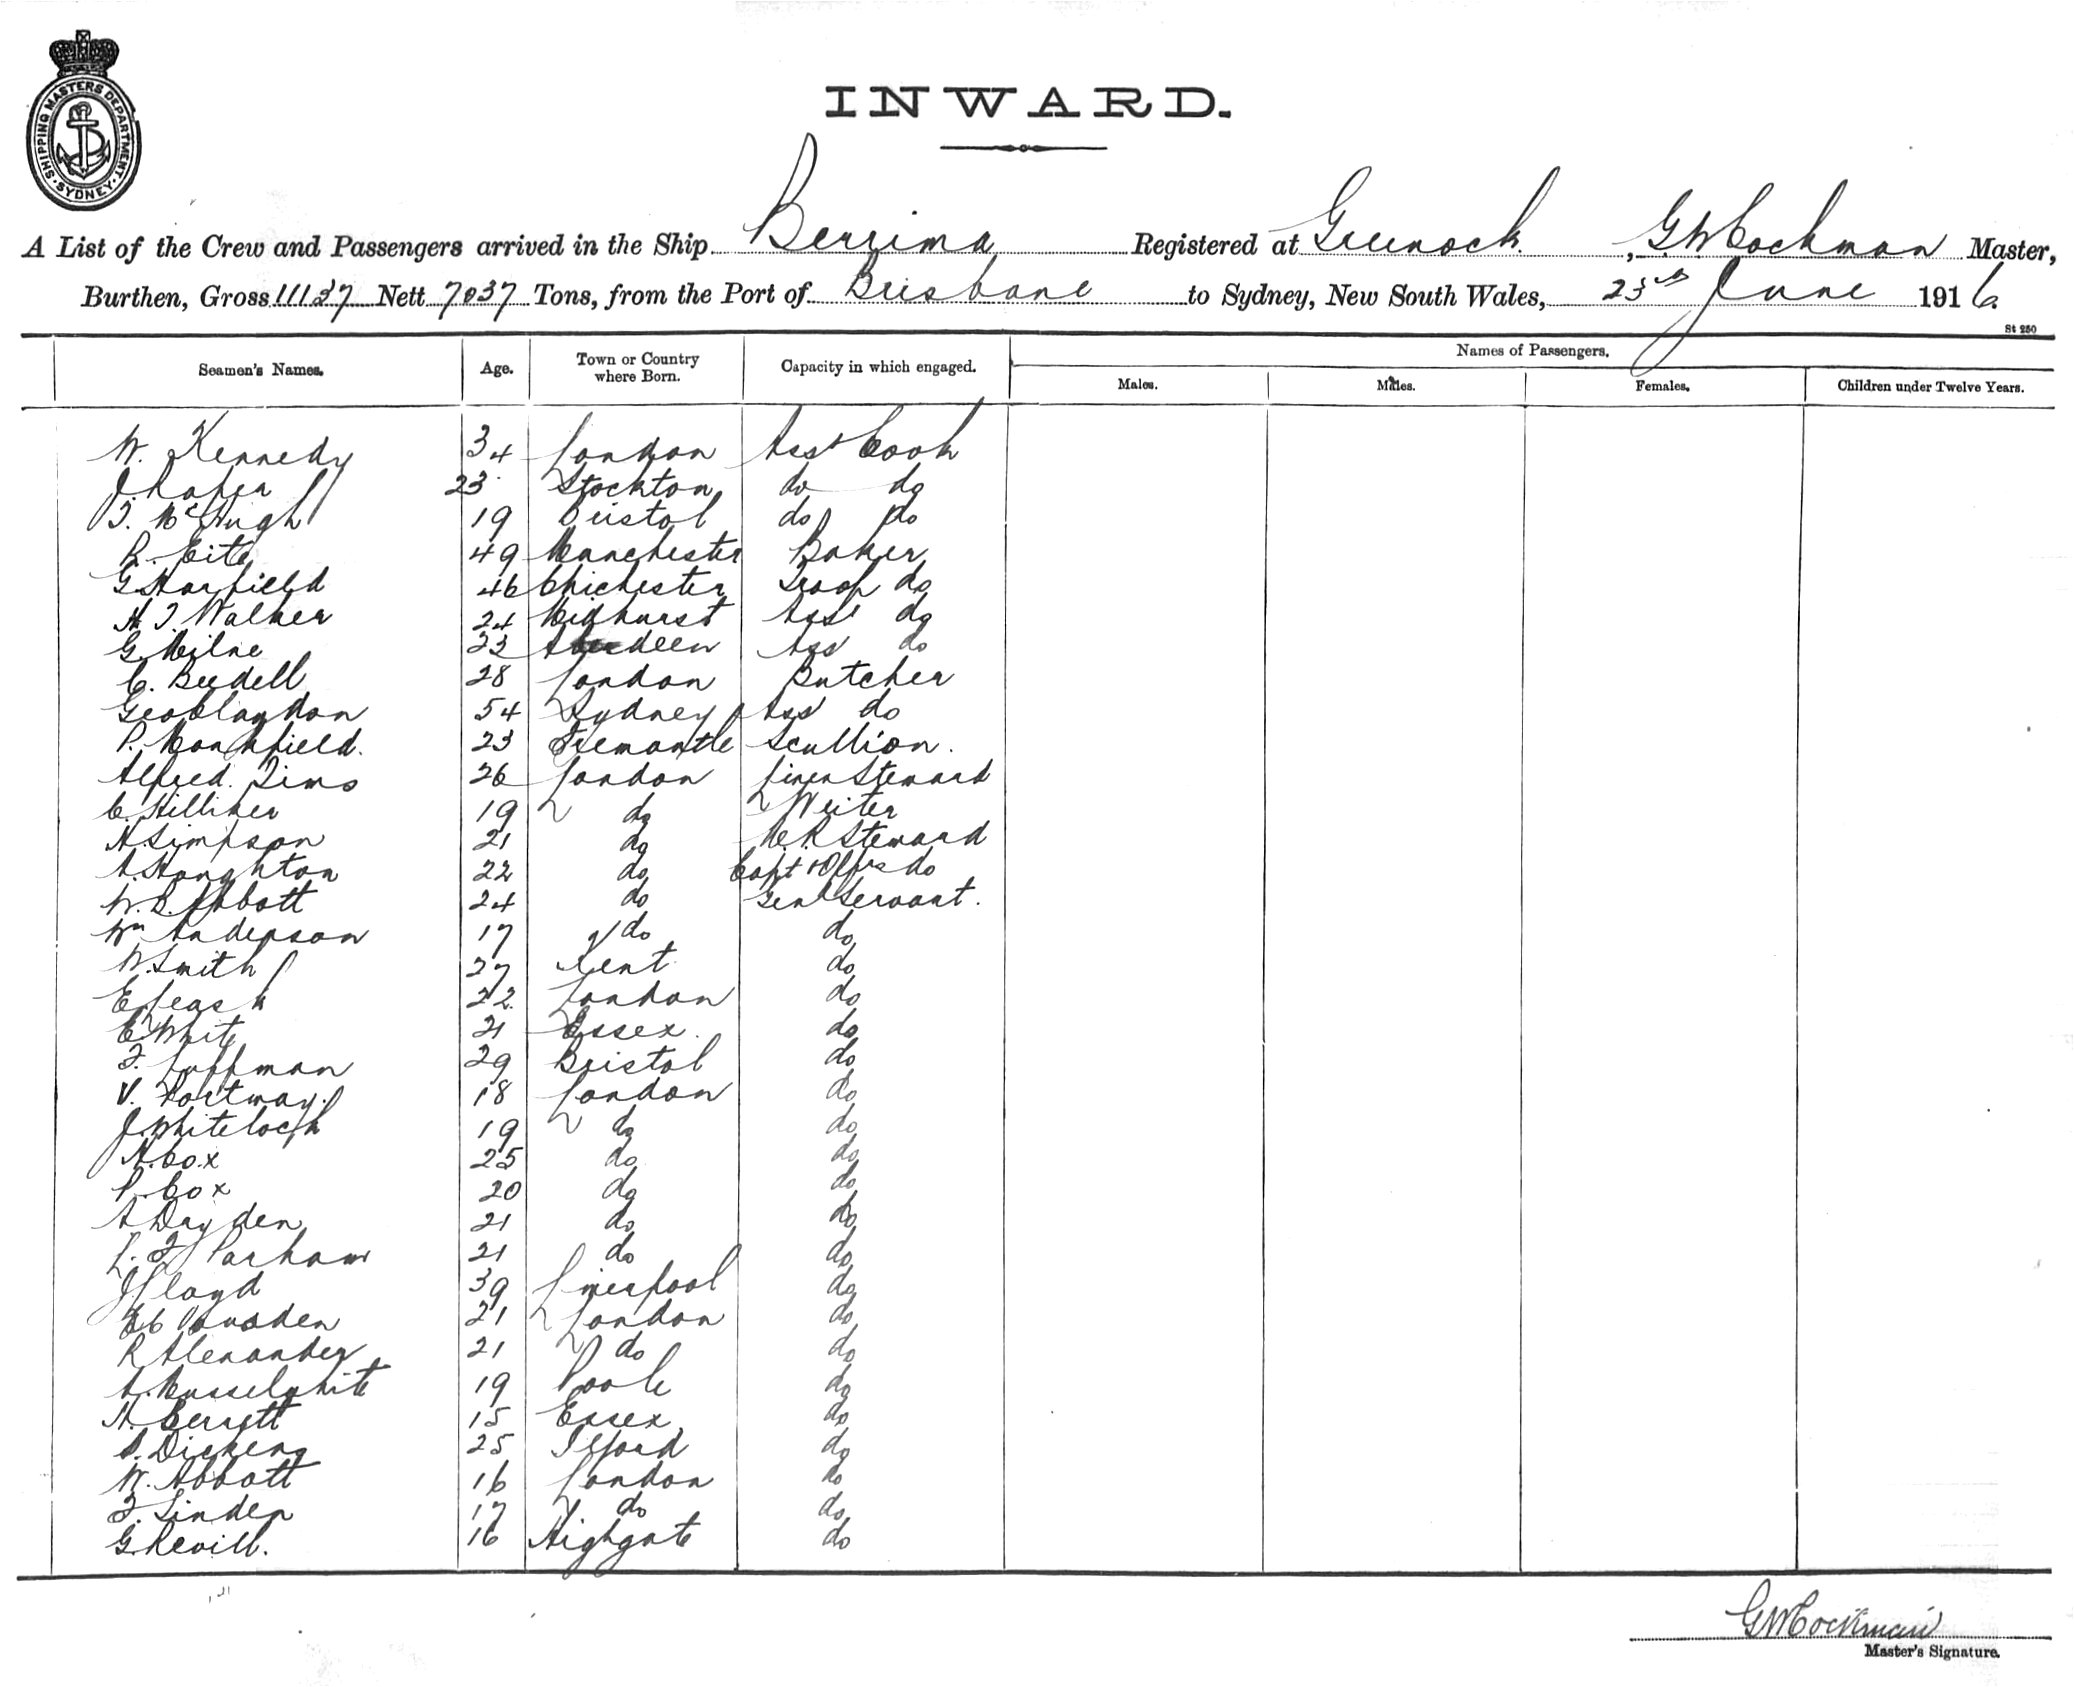 SHIPPING MASTERS DEPARTMENT. SYDNEY.
INWARD.
A List of the Crew and Passengers arrived in the Ship Berrima Registered at Greenock, G W Cockman Master,
Burthen, Gross 11137 Nett 7037 Tons, from the Port of Brisbane to Sydney, New South Wales, 23rd June 1916
St 250
Seamen's Names. Age. Town or Country where Born. Capacity in which engaged. Names of Passengers.
Males. Males. Females. Children under Twelve Years.
W. Kennedy 34 London Asst Cook
J. 23 Stockton do do
T. McHugh 19 Bristol do do
R. 49 Manchester Baker
G Harfield 46 Chichester Troop do
H T. Walker 24 Midhurst Asst do
G. Milne 23 Aberdeen Ass do
C. Beedell 28 London Butcher
Geo Claydon 54 Sydney Asst do
P. 23 Fremantle Scullion.
Alfred. Tims 26 London Linen Steward
C. Hilliker 19 do Writer
H. Simpson 21 do Steward
A. Houghton 22 do Capt & Offrs do
W. Abbott 24 do Genl Servant.
Wm Anderson 17 do do
W. Smith 27 Kent do
E 22 London do
E White 21 Essex. do
F. Luffman 29 Bristol do
V. Portway. 18 London do
J. Whitelock 19 do do
H. Cox 25 do do
P. Cox 20 do do
A Dayden 21 do do
L. F Parham 21 do do
J Lloyd 39 Liverpool do
21 London do
R Alexander 21 do do
A. Musselwhite 19 Poole do
H. 15 Essex do
S. Dickens 25 Ilford do
W. Abbott 16 London do
F. Linden 17 do do
G. Revill. 16 Highgate do
G W Cockman
Master's Signature.